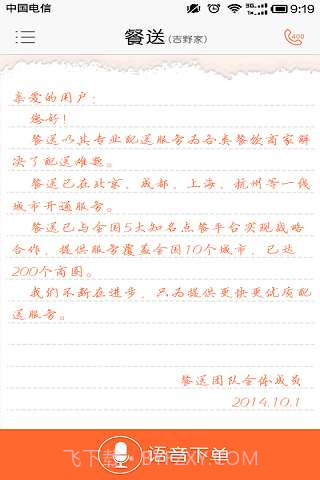 中国电信 3G 1X 9:19
餐送(吉野家) 400
亲爱的用户：
您好！
餐送以其专业配送服务为各类餐饮商家解
决了配送难题。
餐送已在北京、成都、上海、杭州等一线
城市开通服务。
餐送已与全国5大知名点餐平台实现战略
合作，提供服务覆盖全国10个城市，已达
200个商圈。
我们不断在进步，只为提供更快更优质配
送服务。
餐送团队全体成员
2014.10.1
语音下单